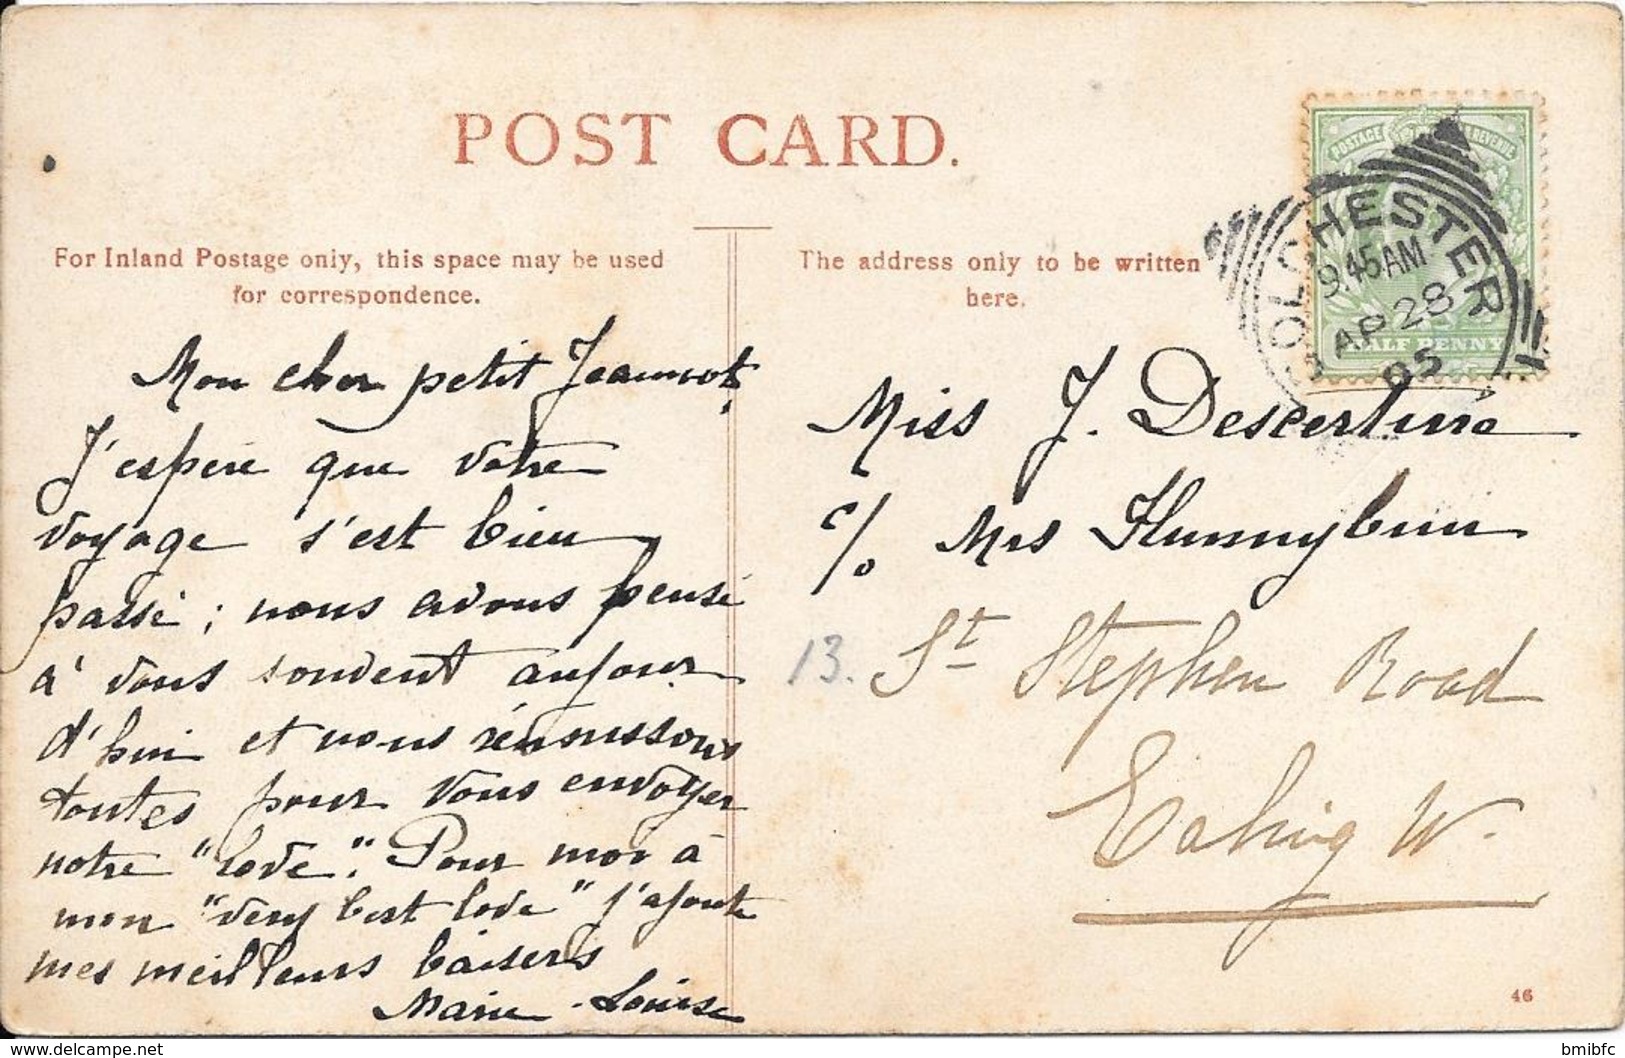 POST CARD.
For Inland Postage only, this space may be used
for correspondence.
The address only to be written
here.
POSTAGE REVENUE
HALF PENNY
COLCHESTER
9.45AM
AP 28
05
Mon cher petit Jeannot,
J'espère que votre
voyage s'est bien
passé ; nous avons pensé
à vous souvent aujour
d'hui et nous réunissons
toutes pour vous envoyer
notre "love". Pour moi à
mon "very best love" j'ajoute
mes meilleurs baisers
Marie-Louise
Miss J.
c/o Mrs
13. St Stephen Road
Ealing W.
46
bmibfc